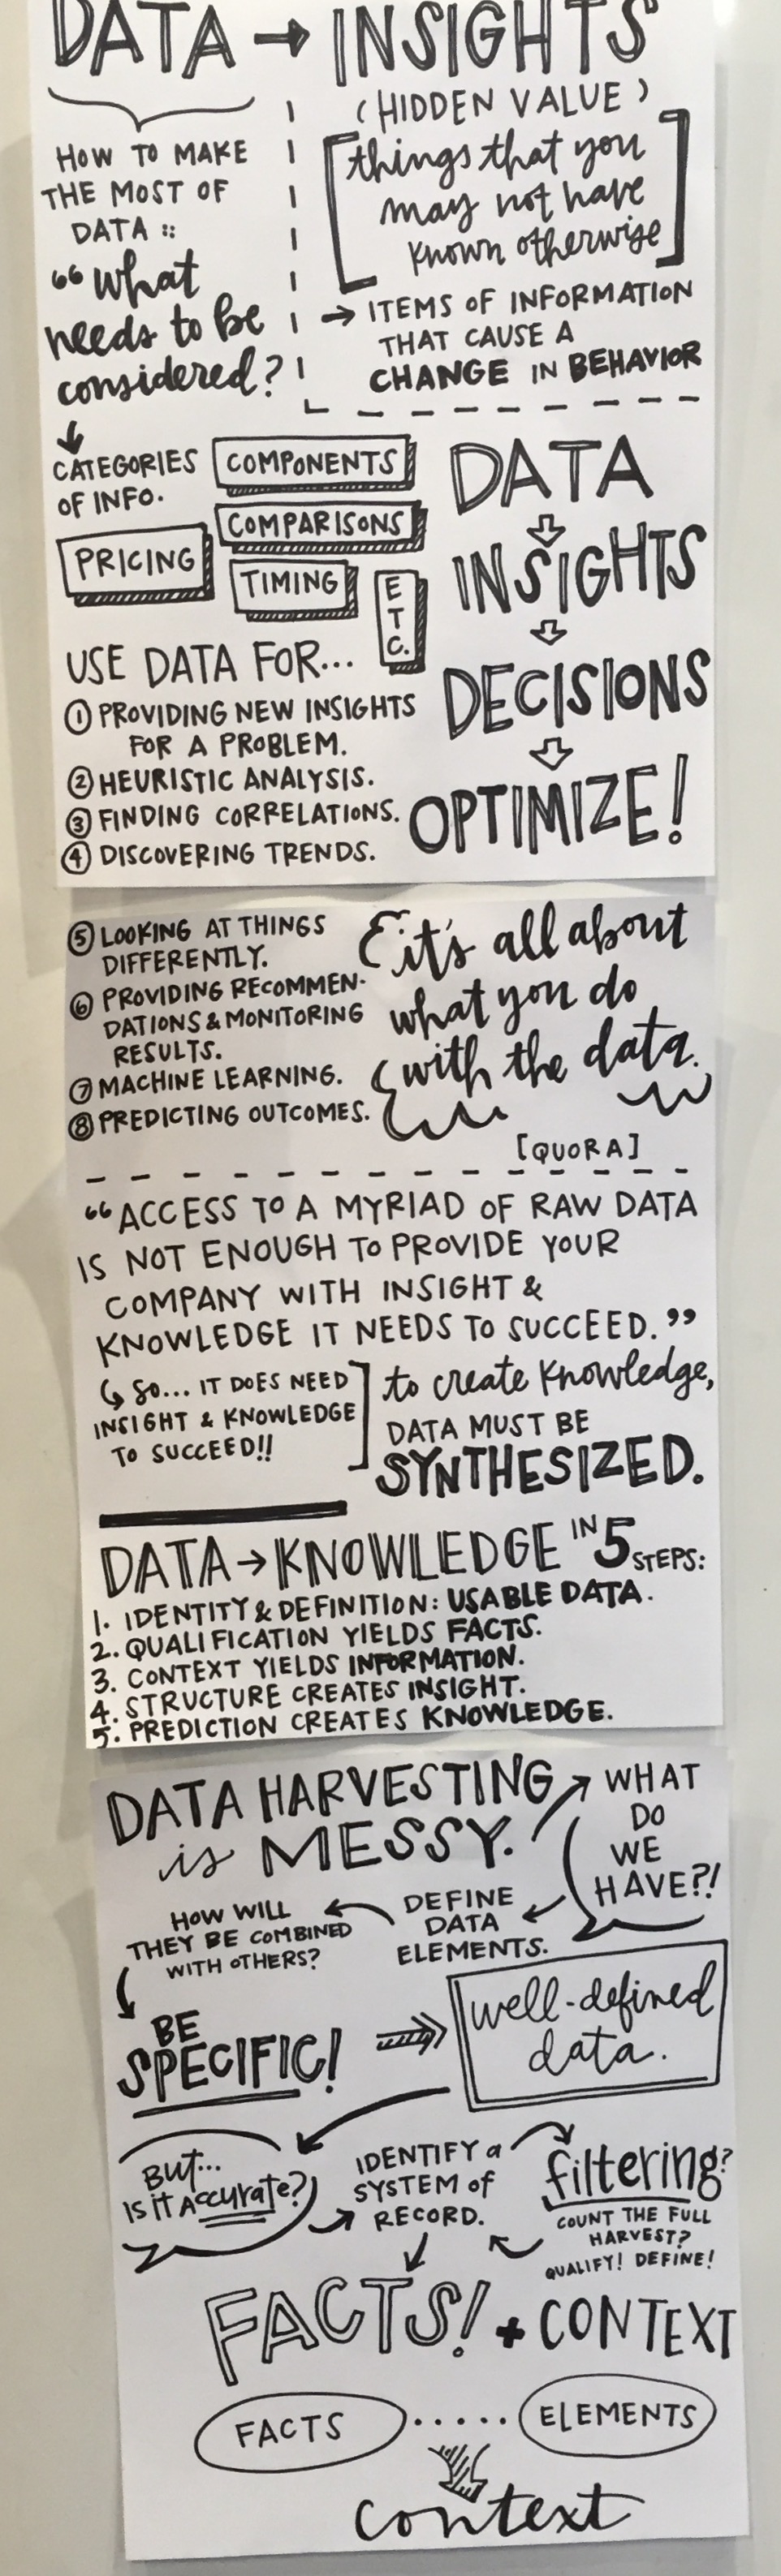 DATA → INSIGHTS
(HIDDEN VALUE)
[things that you
may not have
known otherwise]
→ ITEMS OF INFORMATION
THAT CAUSE A
CHANGE IN BEHAVIOR
HOW TO MAKE
THE MOST OF
DATA ::
“what
needs to be
considered?
CATEGORIES
OF INFO.
COMPONENTS
COMPARISONS
PRICING
TIMING
ETC.
DATA
INSIGHTS
DECISIONS
OPTIMIZE!
USE DATA FOR...
① PROVIDING NEW INSIGHTS
FOR A PROBLEM.
② HEURISTIC ANALYSIS.
③ FINDING CORRELATIONS.
④ DISCOVERING TRENDS.
⑤ LOOKING AT THINGS
DIFFERENTLY.
⑥ PROVIDING RECOMMEN-
DATIONS & MONITORING
RESULTS.
⑦ MACHINE LEARNING.
⑧ PREDICTING OUTCOMES.
it's all about
what you do
with the data.
[QUORA]
“ACCESS TO A MYRIAD OF RAW DATA
IS NOT ENOUGH TO PROVIDE YOUR
COMPANY WITH INSIGHT &
KNOWLEDGE IT NEEDS TO SUCCEED.”
↳ SO... IT DOES NEED
INSIGHT & KNOWLEDGE
TO SUCCEED!!
to create knowledge,
DATA MUST BE
SYNTHESIZED.
DATA → KNOWLEDGE IN 5 STEPS:
1. IDENTITY & DEFINITION: USABLE DATA.
2. QUALIFICATION YIELDS FACTS.
3. CONTEXT YIELDS INFORMATION.
4. STRUCTURE CREATES INSIGHT.
5. PREDICTION CREATES KNOWLEDGE.
DATA HARVESTING
is MESSY.
WHAT
DO
WE
HAVE?!
DEFINE
DATA
ELEMENTS.
HOW WILL
THEY BE COMBINED
WITH OTHERS?
BE
SPECIFIC!
well-defined
data.
BUT...
IS IT ACCURATE?
IDENTIFY a
SYSTEM of
RECORD.
filtering?
COUNT THE FULL
HARVEST?
QUALIFY! DEFINE!
FACTS! + CONTEXT
FACTS ..... ELEMENTS
context